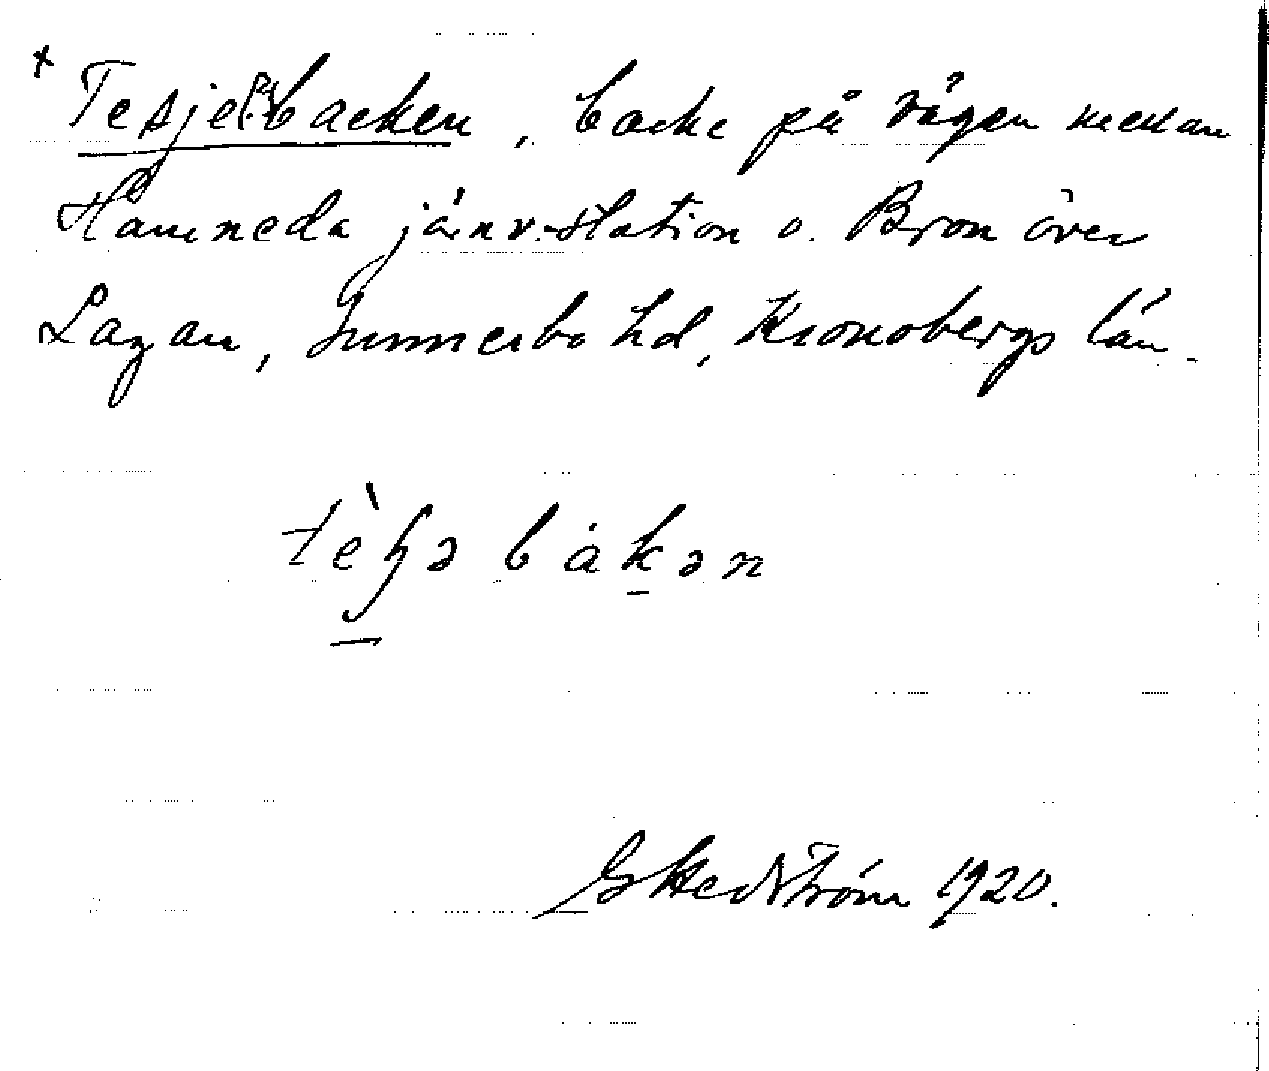 × Tesje(?)backen, backe på vägen mellan
Hamneda järnv.station o. Bron över
Lagan, Sunnerbo hd, Kronobergs län.
bàkən
G Hedström 1920.